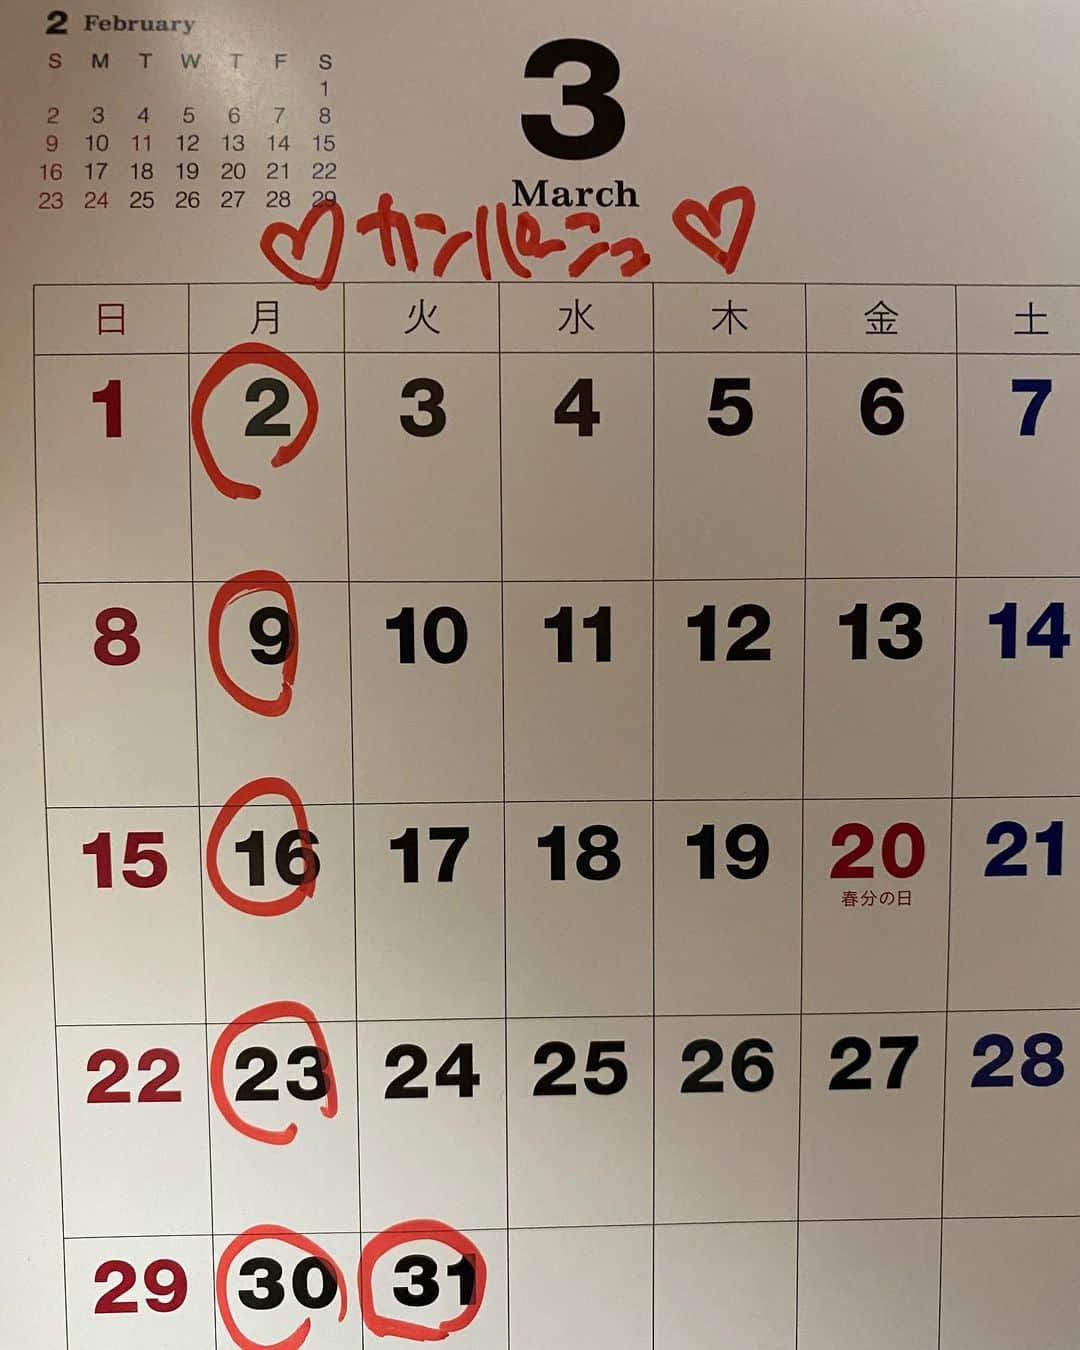 2 February
S M T W T F S
1
2 3 4 5 6 7 8
9 10 11 12 13 14 15
16 17 18 19 20 21 22
23 24 25 26 27 28 29
3
March
♡カンパーニュ♡
日 月 火 水 木 金 土
1 2 3 4 5 6 7
8 9 10 11 12 13 14
15 16 17 18 19 20 21
春分の日
22 23 24 25 26 27 28
29 30 31